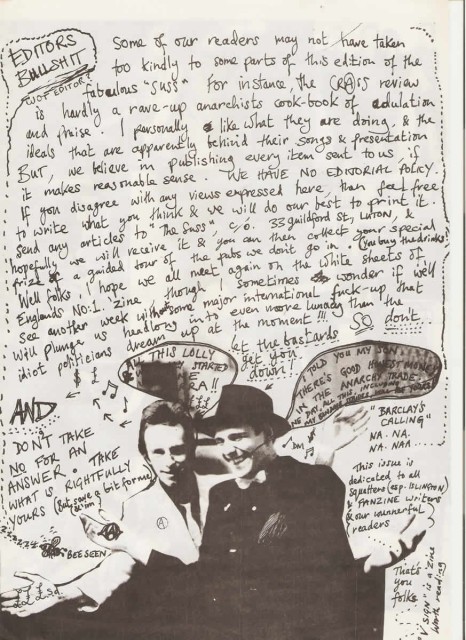 EDITORS
BULLSHIT
Some of our readers may not have taken
too kindly to some parts of this edition of the
fabulous "Suss". For instance, the CRASS review
is hardly a rave-up anarchists cook-book of adulation
and praise. I personally like what they are doing, & the
ideals that are apparently behind their songs & presentation
But, we believe in publishing every item sent to us, if
it makes reasonable sense. WE HAVE NO EDITORIAL POLICY.
If you disagree with any views expressed here, than feel free
to write what you think & we will do our best to print it.
Send any articles to "The Suss" c/o. 33 guildford st, LUTON, &
hopefully we will receive it & you can then collect your special
prize of a guided tour of the pubs we don't go in. (You buy the drinks)
Well folks, I hope we all meet again on the white sheets of
Englands No.1 'zine, though I sometimes wonder if we'll
see another week without some major international fuck-up that
will plunge us headlong into even more lunacy than the
idiot politicians dream up at the moment!!! SO don't
let the bastards
get you
down!
ALL THIS LOLLY
STARTED
I TOLD YOU MY SON
THERE'S GOOD HONEST MONEY
IN THE ANARCHY TRADE.
AND
DON'T TAKE
NO FOR AN
ANSWER. TAKE
WHAT IS RIGHTFULLY
YOURS (But save a bit for me
& tim)
"BARCLAY'S
CALLING"
NA. NA.
NA. NAA
This issue is
dedicated to all
squatters (esp. ISLINGTON)
& FANZINE writers
& our wonnerful
readers
BEESEEN
££ Lsd.
That's
you
folks
"SIGN" is a 'zine
worth reading